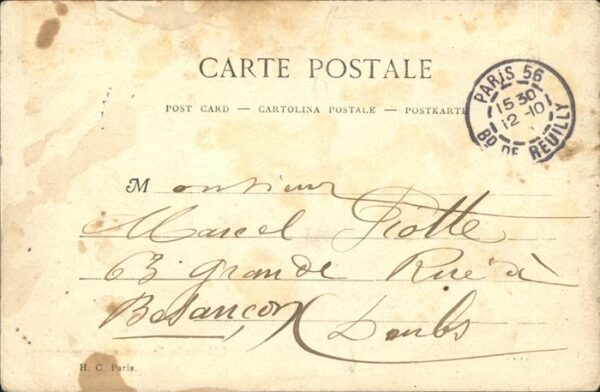 CARTE POSTALE
POST CARD — CARTOLINA POSTALE — POSTKARTE
PARIS 56
15 30
12 -10
BD DE REUILLY
Monsieur
Marcel Piotte
63 grande Rue à
Besançon (Doubs
H. C. Paris.